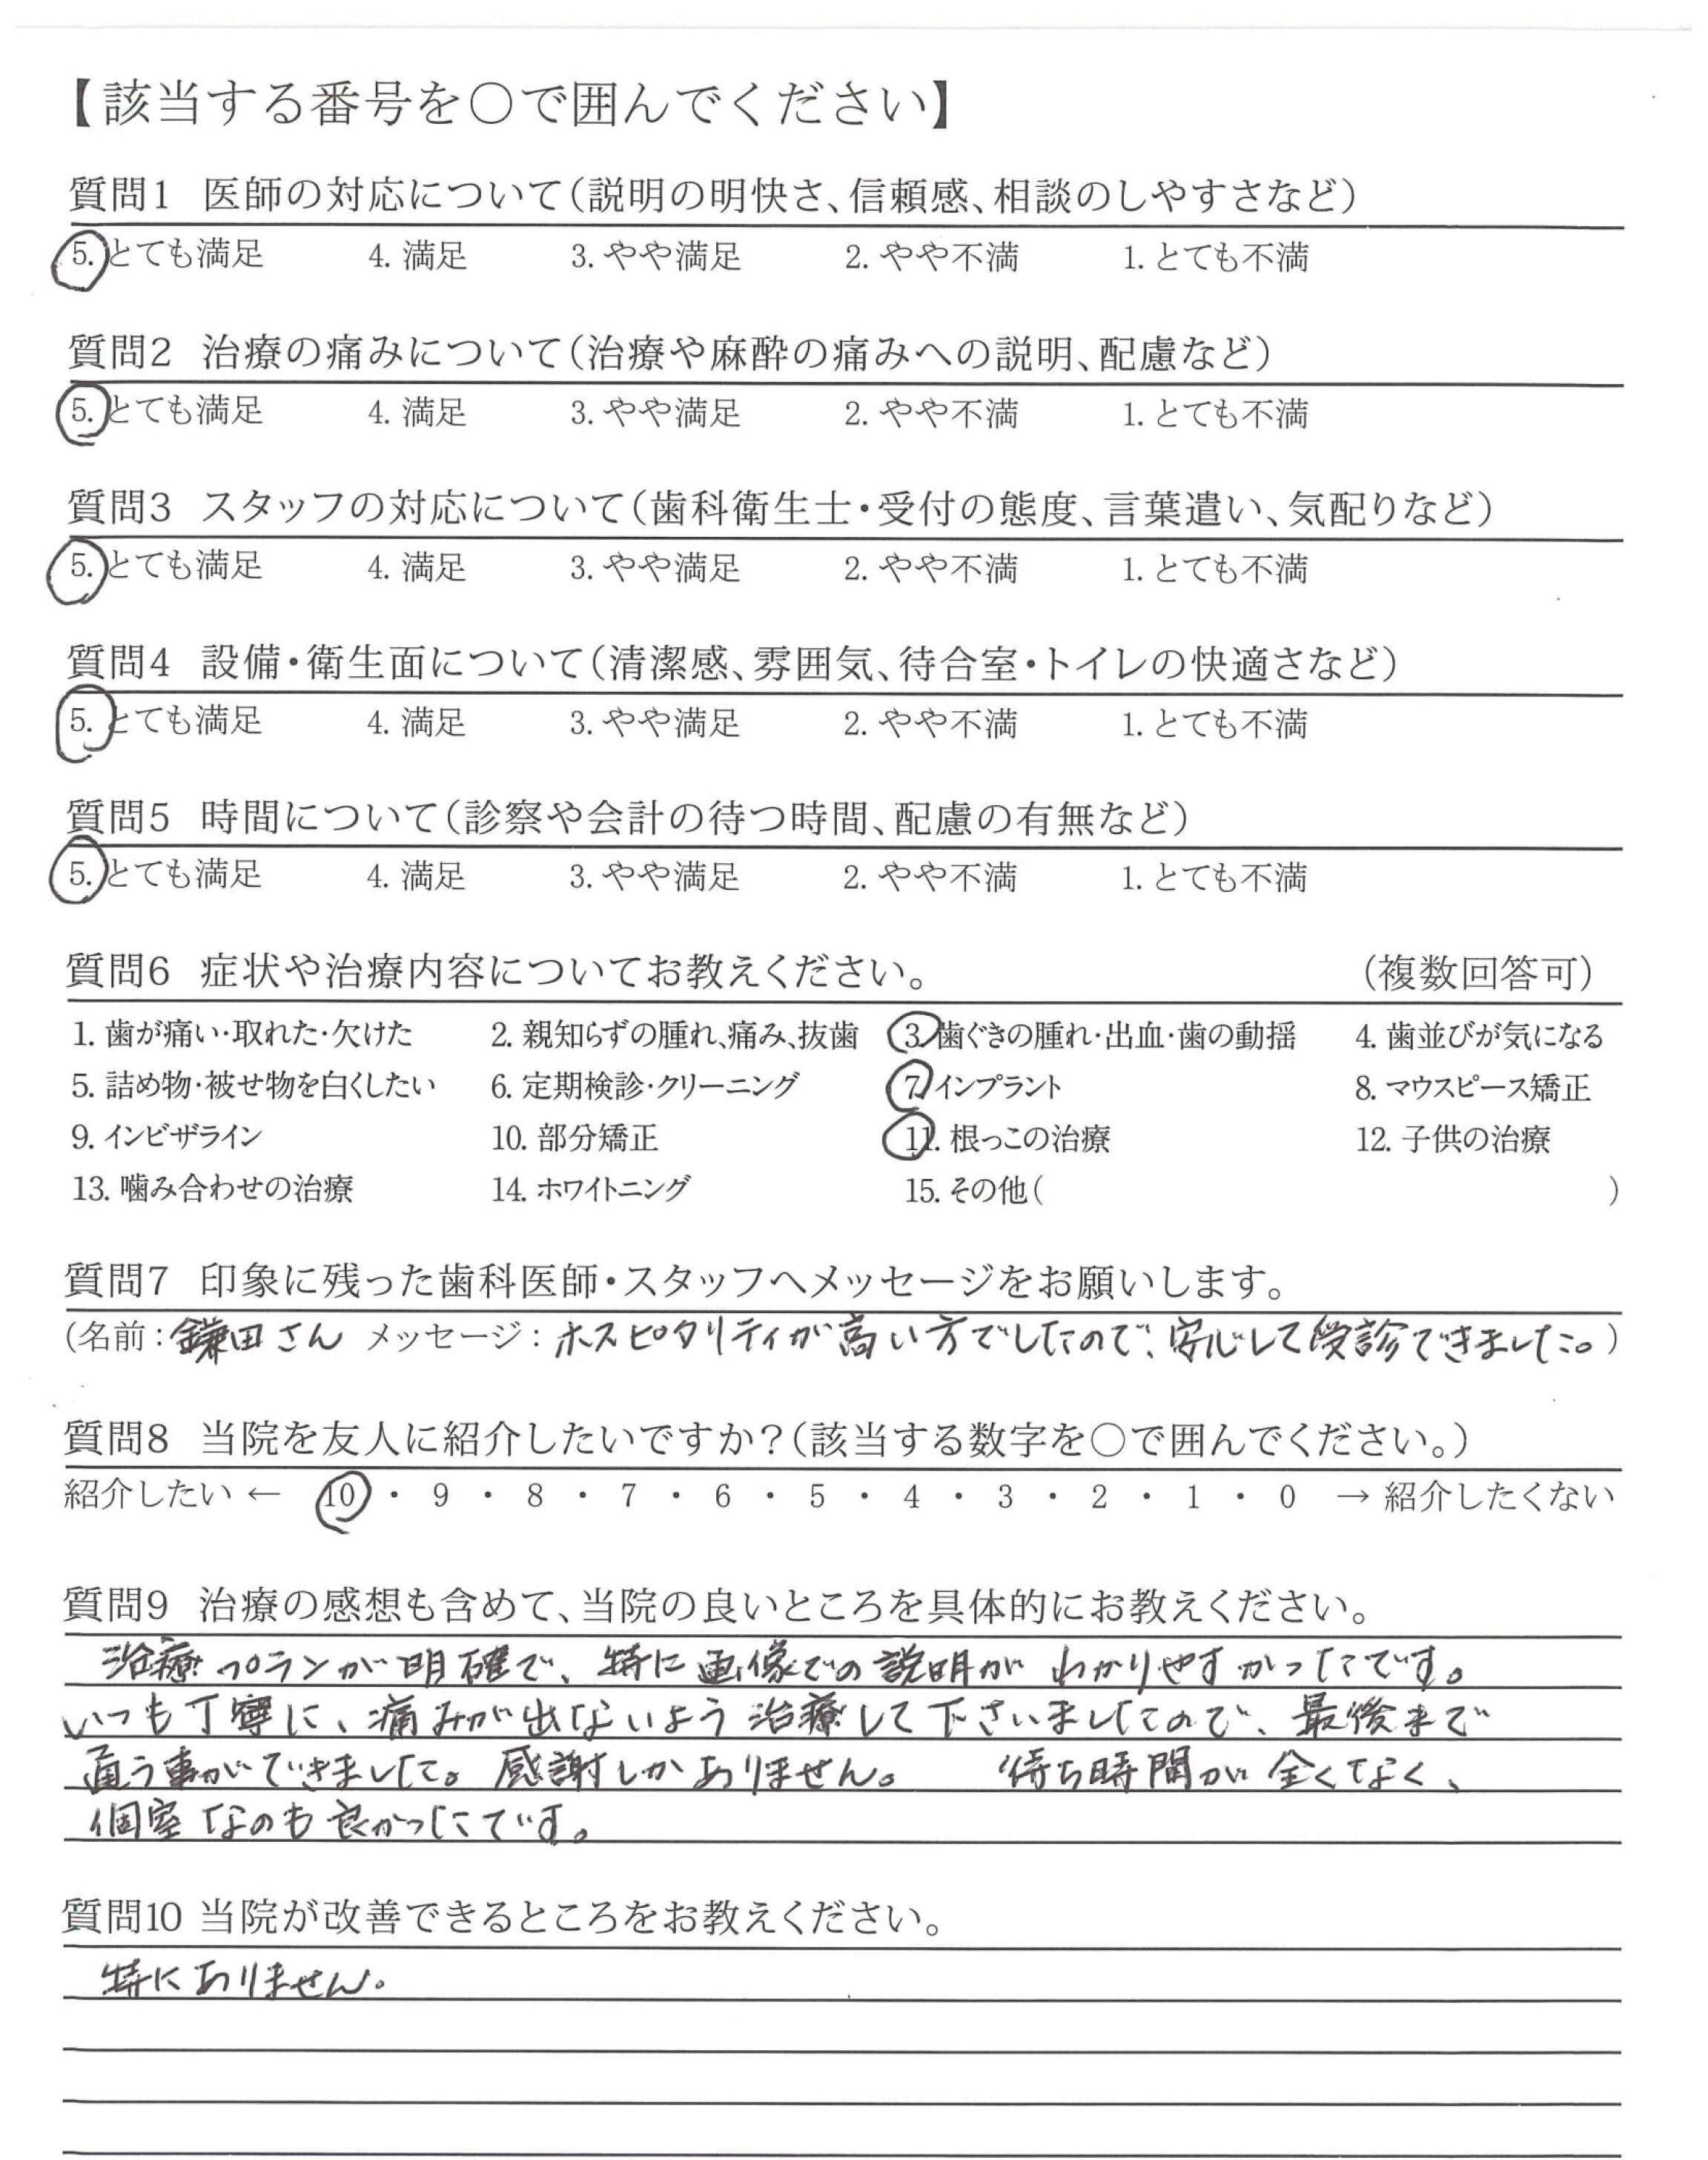 【該当する番号を○で囲んでください】
質問1 医師の対応について(説明の明快さ、信頼感、相談のしやすさなど)
5. とても満足 4. 満足 3. やや満足 2. やや不満 1. とても不満
質問2 治療の痛みについて(治療や麻酔の痛みへの説明、配慮など)
5. とても満足 4. 満足 3. やや満足 2. やや不満 1. とても不満
質問3 スタッフの対応について(歯科衛生士・受付の態度、言葉遣い、気配りなど)
5. とても満足 4. 満足 3. やや満足 2. やや不満 1. とても不満
質問4 設備・衛生面について(清潔感、雰囲気、待合室・トイレの快適さなど)
5. とても満足 4. 満足 3. やや満足 2. やや不満 1. とても不満
質問5 時間について(診察や会計の待つ時間、配慮の有無など)
5. とても満足 4. 満足 3. やや満足 2. やや不満 1. とても不満
質問6 症状や治療内容についてお教えください。 (複数回答可)
1. 歯が痛い・取れた・欠けた 2. 親知らずの腫れ、痛み、抜歯 3. 歯ぐきの腫れ・出血・歯の動揺 4. 歯並びが気になる
5. 詰め物・被せ物を白くしたい 6. 定期検診・クリーニング 7. インプラント 8. マウスピース矯正
9. インビザライン 10. 部分矯正 11. 根っこの治療 12. 子供の治療
13. 噛み合わせの治療 14. ホワイトニング 15. その他( )
質問7 印象に残った歯科医師・スタッフへメッセージをお願いします。
(名前:鎌田さん メッセージ:ホスピタリティが高い方でしたので、安心して受診できました。)
質問8 当院を友人に紹介したいですか?(該当する数字を○で囲んでください。)
紹介したい ← 10 ・ 9 ・ 8 ・ 7 ・ 6 ・ 5 ・ 4 ・ 3 ・ 2 ・ 1 ・ 0 → 紹介したくない
質問9 治療の感想も含めて、当院の良いところを具体的にお教えください。
治療プランが明確で、特に画像での説明がわかりやすかったです。
いつも丁寧に、痛みが出ないよう治療して下さいましたので、最後まで
直う事ができました。感謝しかありません。 待ち時間が全くなく、
個室なのも良かったです。
質問10 当院が改善できるところをお教えください。
特にありません。